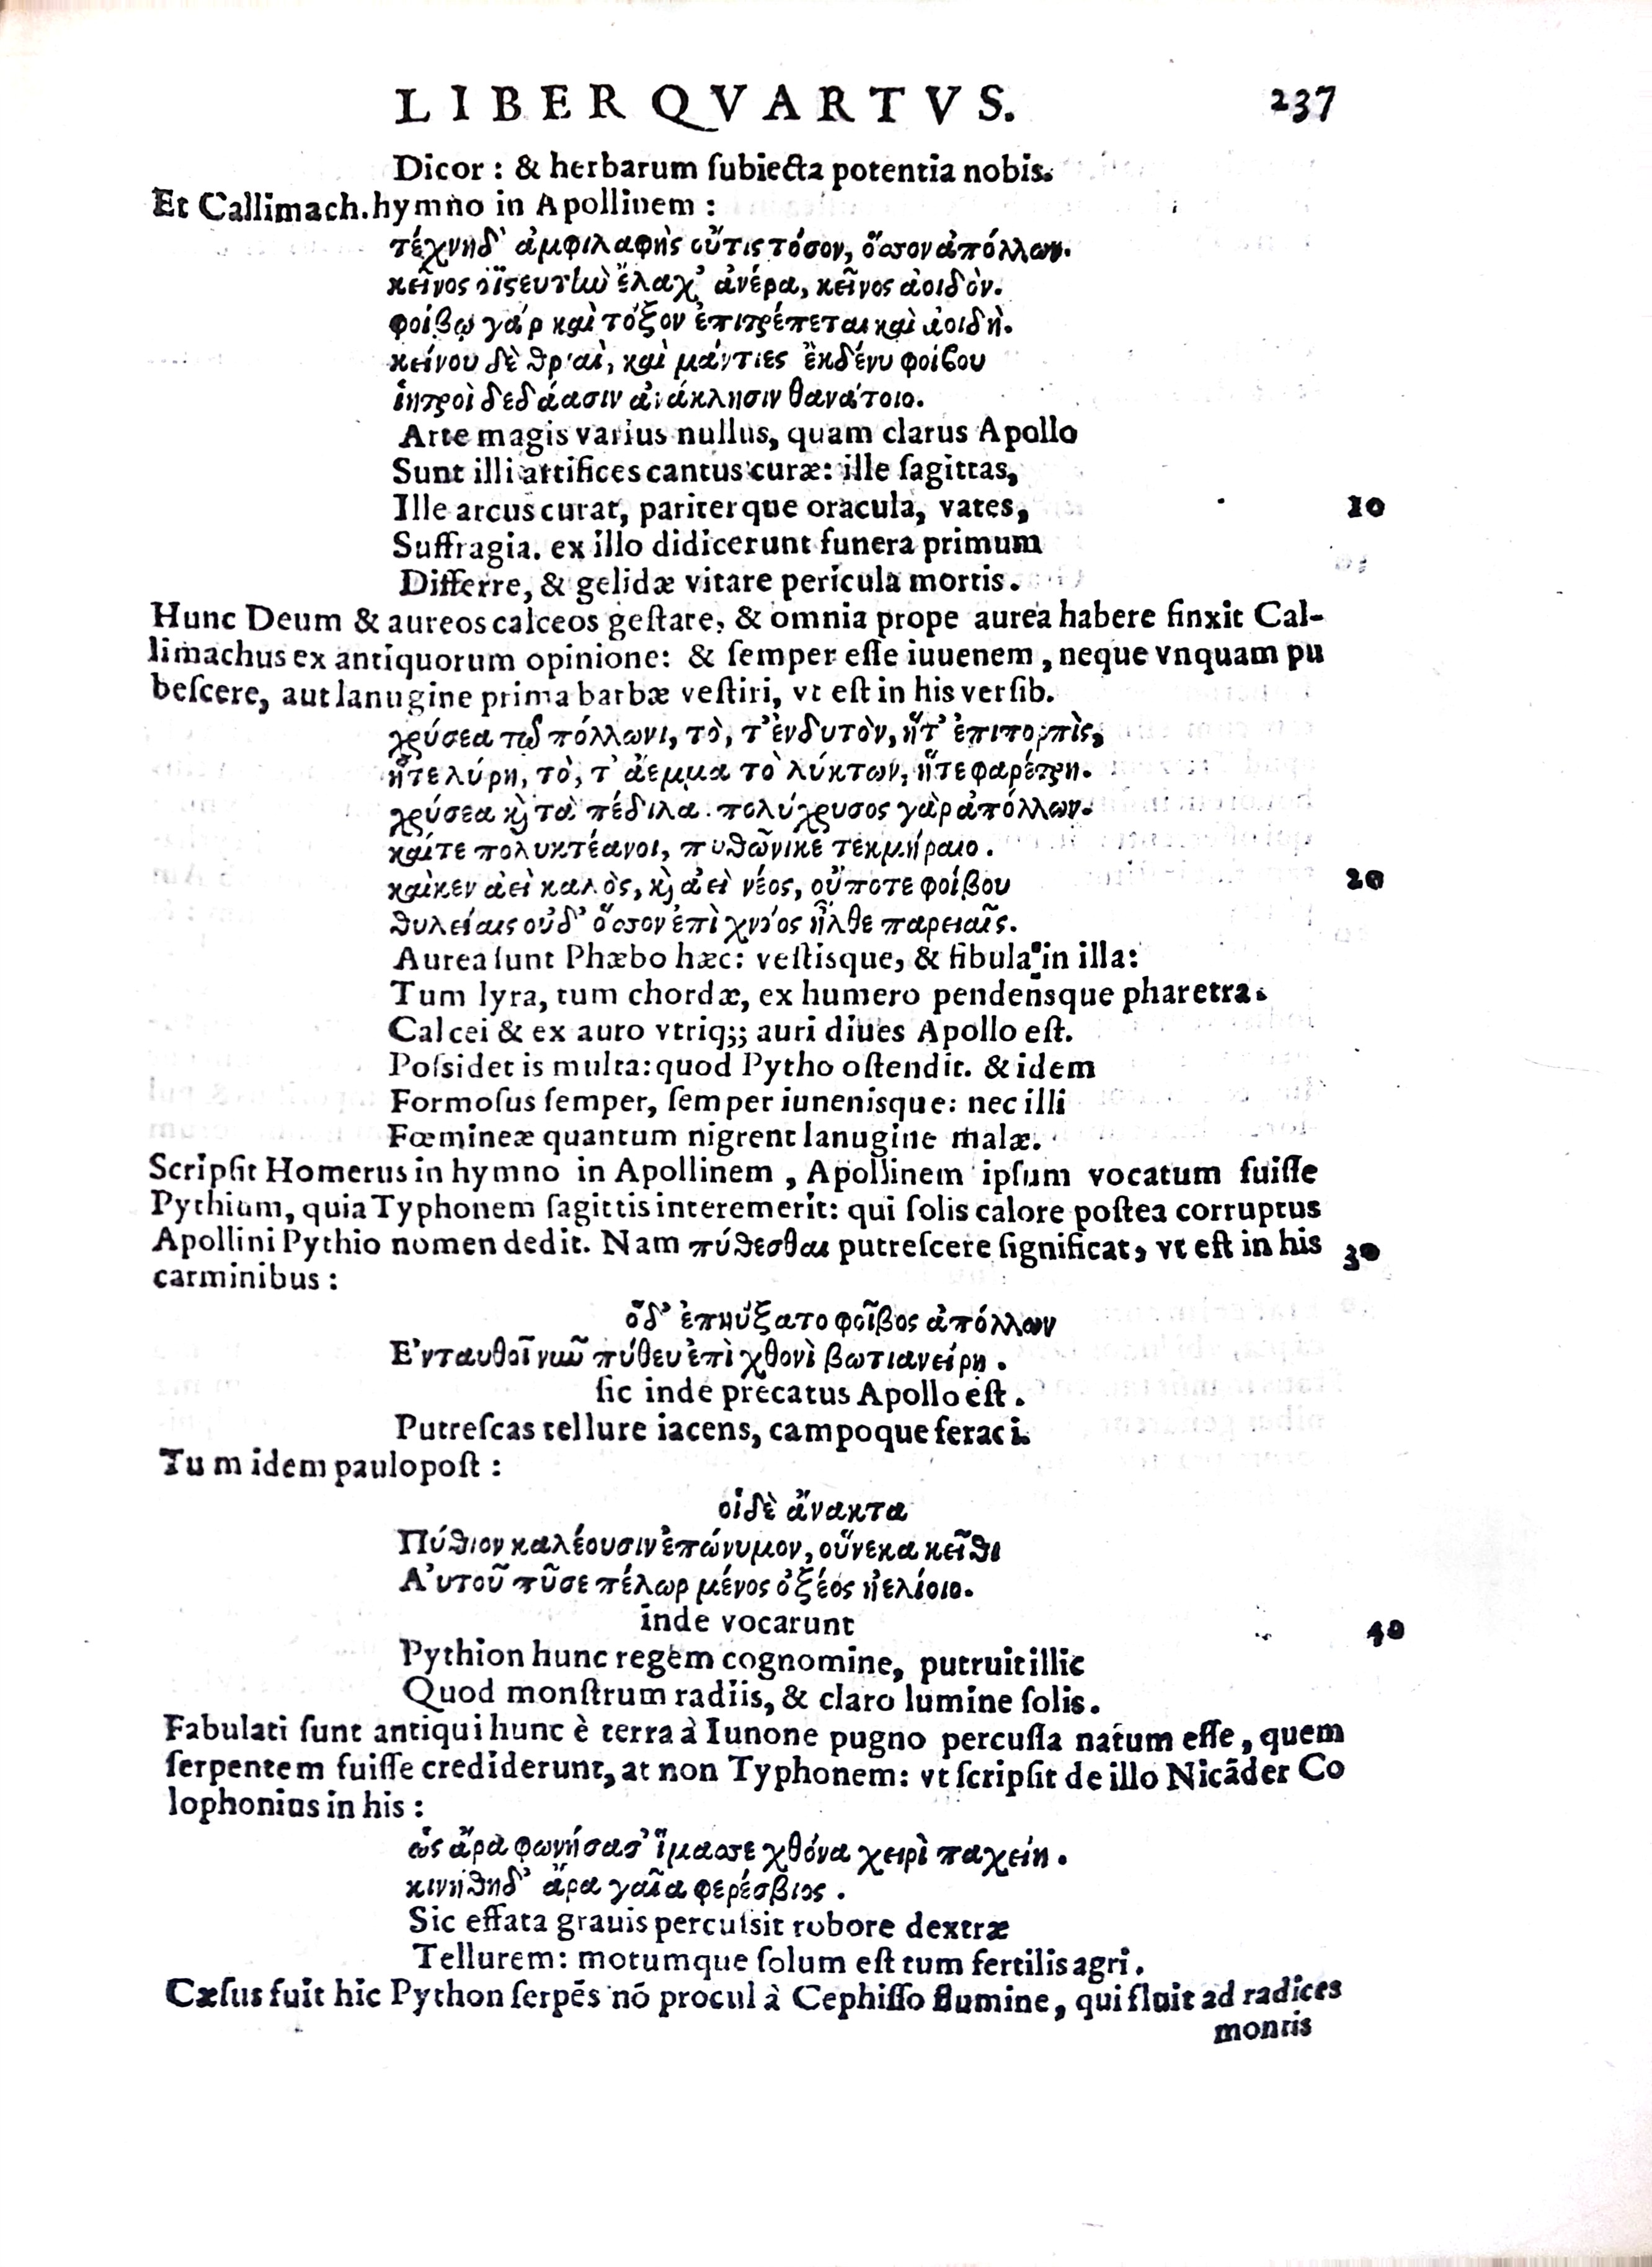 LIBER QVARTVS. 237
Dicor : & herbarum ſubiecta potentia nobis.
Et Callimach. hymno in Apollinem :
τέχνῃ δ' ἀμφιλαφὴς οὔτις τόσον, ὅσσον ἀπόλλων.
κεῖνος ὀϊστευτὴν ἔλαχ' ἀνέρα, κεῖνος ἀοιδὸν.
φοίβῳ γὰρ καὶ τόξον ἐπιτρέπεται καὶ ἀοιδὴ.
κείνου δὲ θριαὶ, καὶ μάντιες ἐκ δέ νυ φοίβου
ἰητροὶ δεδάασιν ἀνάκλησιν θανάτοιο.
Arte magis varius nullus, quam clarus Apollo
Sunt illi artifices cantus curæ: ille ſagittas,
Ille arcus curat, pariterque oracula, vates, 10
Suffragia. ex illo didicerunt funera primum
Differre, & gelidæ vitare pericula mortis.
Hunc Deum & aureos calceos geſtare, & omnia prope aurea habere finxit Cal-
limachus ex antiquorum opinione: & ſemper eſſe iuuenem, neque vnquam pu
beſcere, aut lanugine prima barbæ veſtiri, vt eſt in his verſib.
χρύσεα τὠ πόλλωνι, τὸ, τ' ἐνδυτὸν, ἥτ' ἐπιπορπὶς,
ἥτε λύρη, τὸ, τ' ἄεμμα τὸ λύκτων, ἥτε φαρέτρη.
χρύσεα καὶ τὰ πέδιλα. πολύχρυσος γὰρ ἀπόλλων.
καίτε πολυκτέανοι, πυθῶνι κε τεκμήραιο.
καὶ κεν ἀεὶ καλὸς, καὶ ἀεὶ νέος, οὔποτε φοίβου 20
θυλείαις οὐδ' ὅσσον ἐπὶ χνόος ἦλθε παρειαῖς.
Aurea ſunt Phæbo hæc: veſtisque, & fibula in illa:
Tum lyra, tum chordæ, ex humero pendensque pharetra.
Calcei & ex auro vtriq;; auri diues Apollo eſt.
Poſsidet is multa: quod Pytho oſtendit. & idem
Formoſus ſemper, ſemper iunenisque: nec illi
Fœmineæ quantum nigrent lanugine malæ.
Scripſit Homerus in hymno in Apollinem, Apollinem ipſum vocatum fuiſſe
Pythium, quia Typhonem ſagittis interemerit: qui ſolis calore poſtea corruptus
Apollini Pythio nomen dedit. Nam πύθεσθαι putreſcere ſignificat, vt eſt in his 30
carminibus :
ὅδ' ἐπηύξατο φοῖβος ἀπόλλων
Ἐνταυθοῖ νῦν πύθευ ἐπὶ χθονὶ βωτιανείρῃ.
ſic inde precatus Apollo eſt.
Putreſcas tellure iacens, campoque feraci.
Tum idem paulo poſt :
οἱ δὲ ἄνακτα
Πύθιον καλέουσιν ἐπώνυμον, οὕνεκα κεῖθι
Αὐτοῦ πῦσε πέλωρ μένος ὀξέος ἠελίοιο.
inde vocarunt 40
Pythion hunc regem cognomine, putruit illic
Quod monſtrum radiis, & claro lumine ſolis.
Fabulati ſunt antiqui hunc è terra à Iunone pugno percuſſa natum eſſe, quem
ſerpentem fuiſſe crediderunt, at non Typhonem: vt ſcripſit de illo Nicãder Co
lophonius in his :
ὣς ἄρα φωνήσασ' ἵμασσε χθόνα χειρὶ παχείῃ.
κινήθη δ' ἄρα γαῖα φερέσβιος.
Sic effata grauis percuſsit robore dextræ
Tellurem: motumque ſolum eſt tum fertilis agri.
Cæſus fuit hic Python ſerpẽs nõ procul à Cephiſſo flumine, qui fluit ad radices
montis